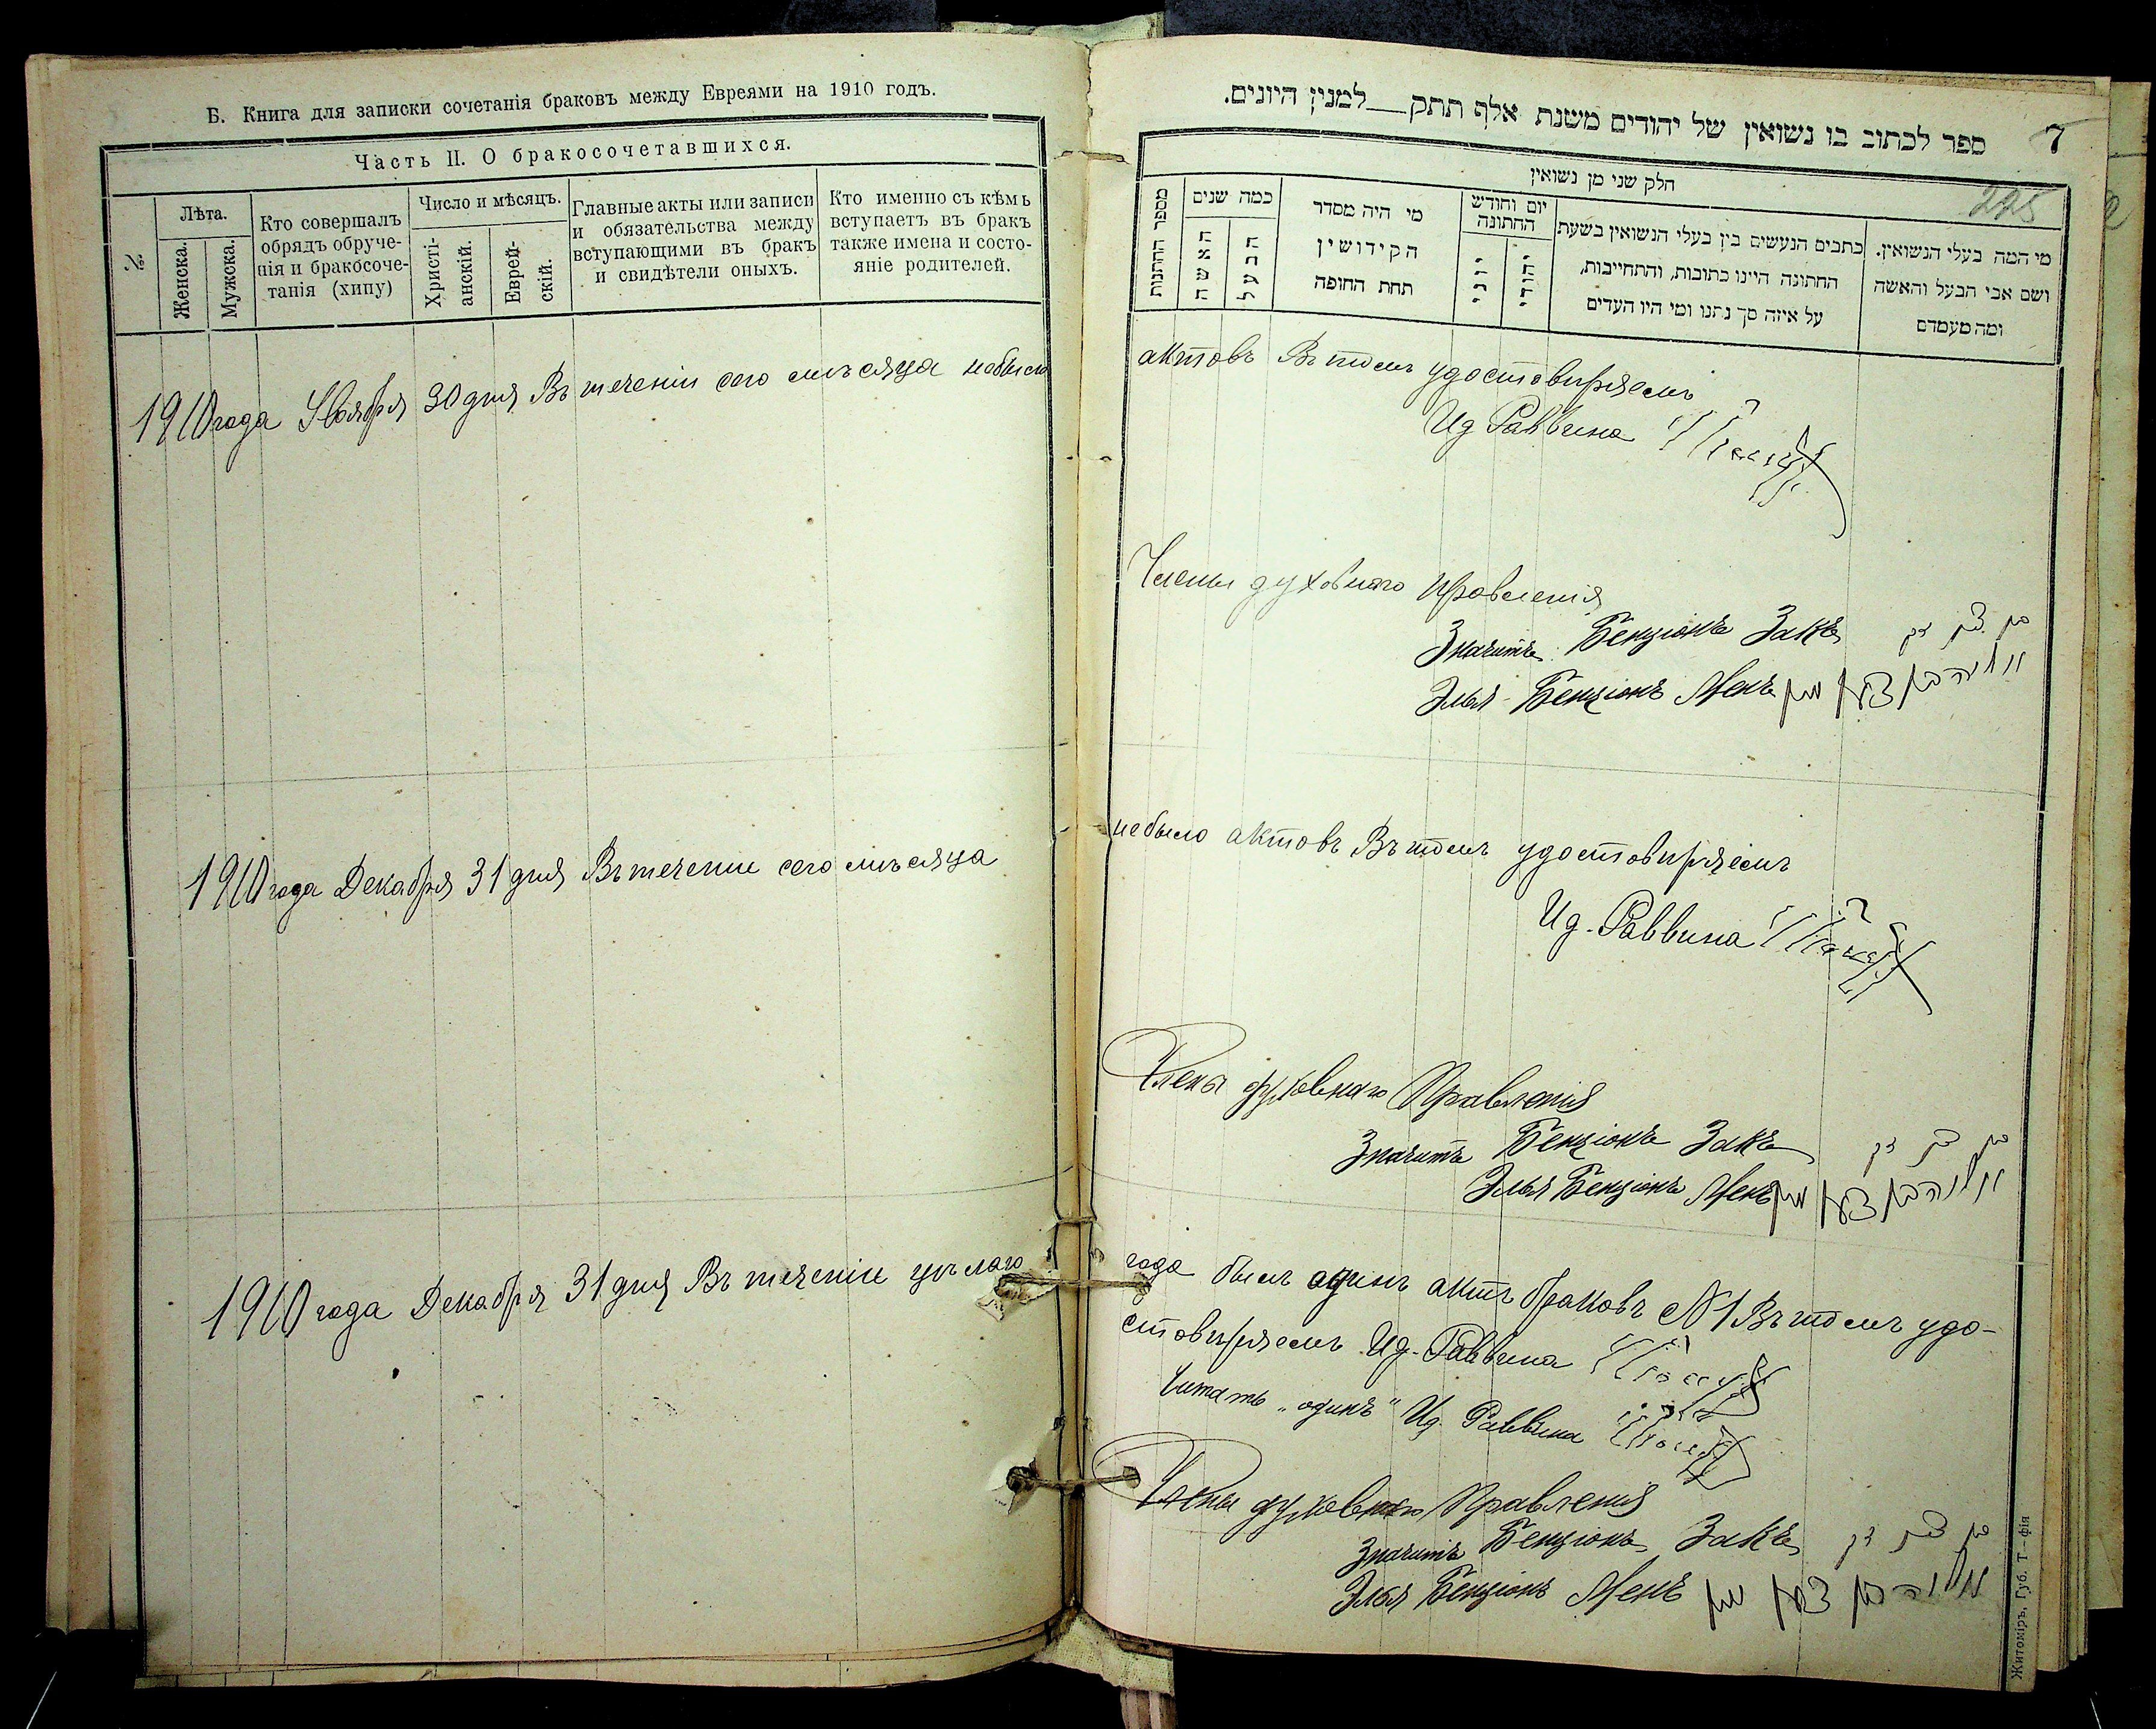 Б. Книга для записки сочетанія браковъ между Евреями на 1910 годъ.
Часть II. О бракосочетавшихся.
№
Лѣта.
Женска.
Мужска.
Кто совершалъ
обрядъ обруче-
нія и бракосоче-
танія (хипу)
Число и мѣсяцъ.
Христі-
анскій.
Еврей-
скій.
Главные акты или записи
и обязательства между
вступающими въ бракъ
и свидѣтели оныхъ.
Кто именно съ кѣмъ
вступаетъ въ бракъ
также имена и состо-
яніе родителей.
1910 года Ноября 30 дня Въ теченіи сего мѣсяца небыло
1910 года Декабря 31 дня Въ теченіи сего мѣсяца
1910 года Декабря 31 дня Въ теченіи цѣлаго
ספר לכתוב בו נשואין של יהודים משנת אלף תתק — למנין היונים.
7
225
חלק שני מן נשואין
מספר החתנות
כמה שנים
האשה
הבעל
מי היה מסדר
הקידושין
תחת החופה
יום וחודש
החתונה
יוני
יהודי
כתבים הנעשים בין בעלי הנשואין בשעת
החתונה היינו כתובות, והתחייבות,
על איזה סך נתנו ומי היו העדים
מי המה בעלי הנשואין.
ושם אבי הבעל והאשה
ומה מעמדם
актовъ Въ томъ удостовѣряемъ
Ид Раввина
Члены духовнаго Правленія
Значитъ Бенціонъ Закъ בן ציון זק
Элья Бенціонъ Менъ אליה בן ציון מן
небыло актовъ Въ томъ удостовѣряемъ
Ид. Раввина
Члены духовнаго Правленія
Значитъ Бенціонъ Закъ בן ציון זק
Элья Бенціонъ Менъ אליה בן ציון מן
года былъ одинъ актъ браковъ №1 Въ томъ удо-
стовѣряемъ Ид. Раввина
Читать „одинъ“ Ид. Раввина
Члены духовнаго Правленія
Значитъ Бенціонъ Закъ בן ציון זק
Элья Бенціонъ Менъ אליה בן ציון מן
Житоміръ, Губ. Т—фія